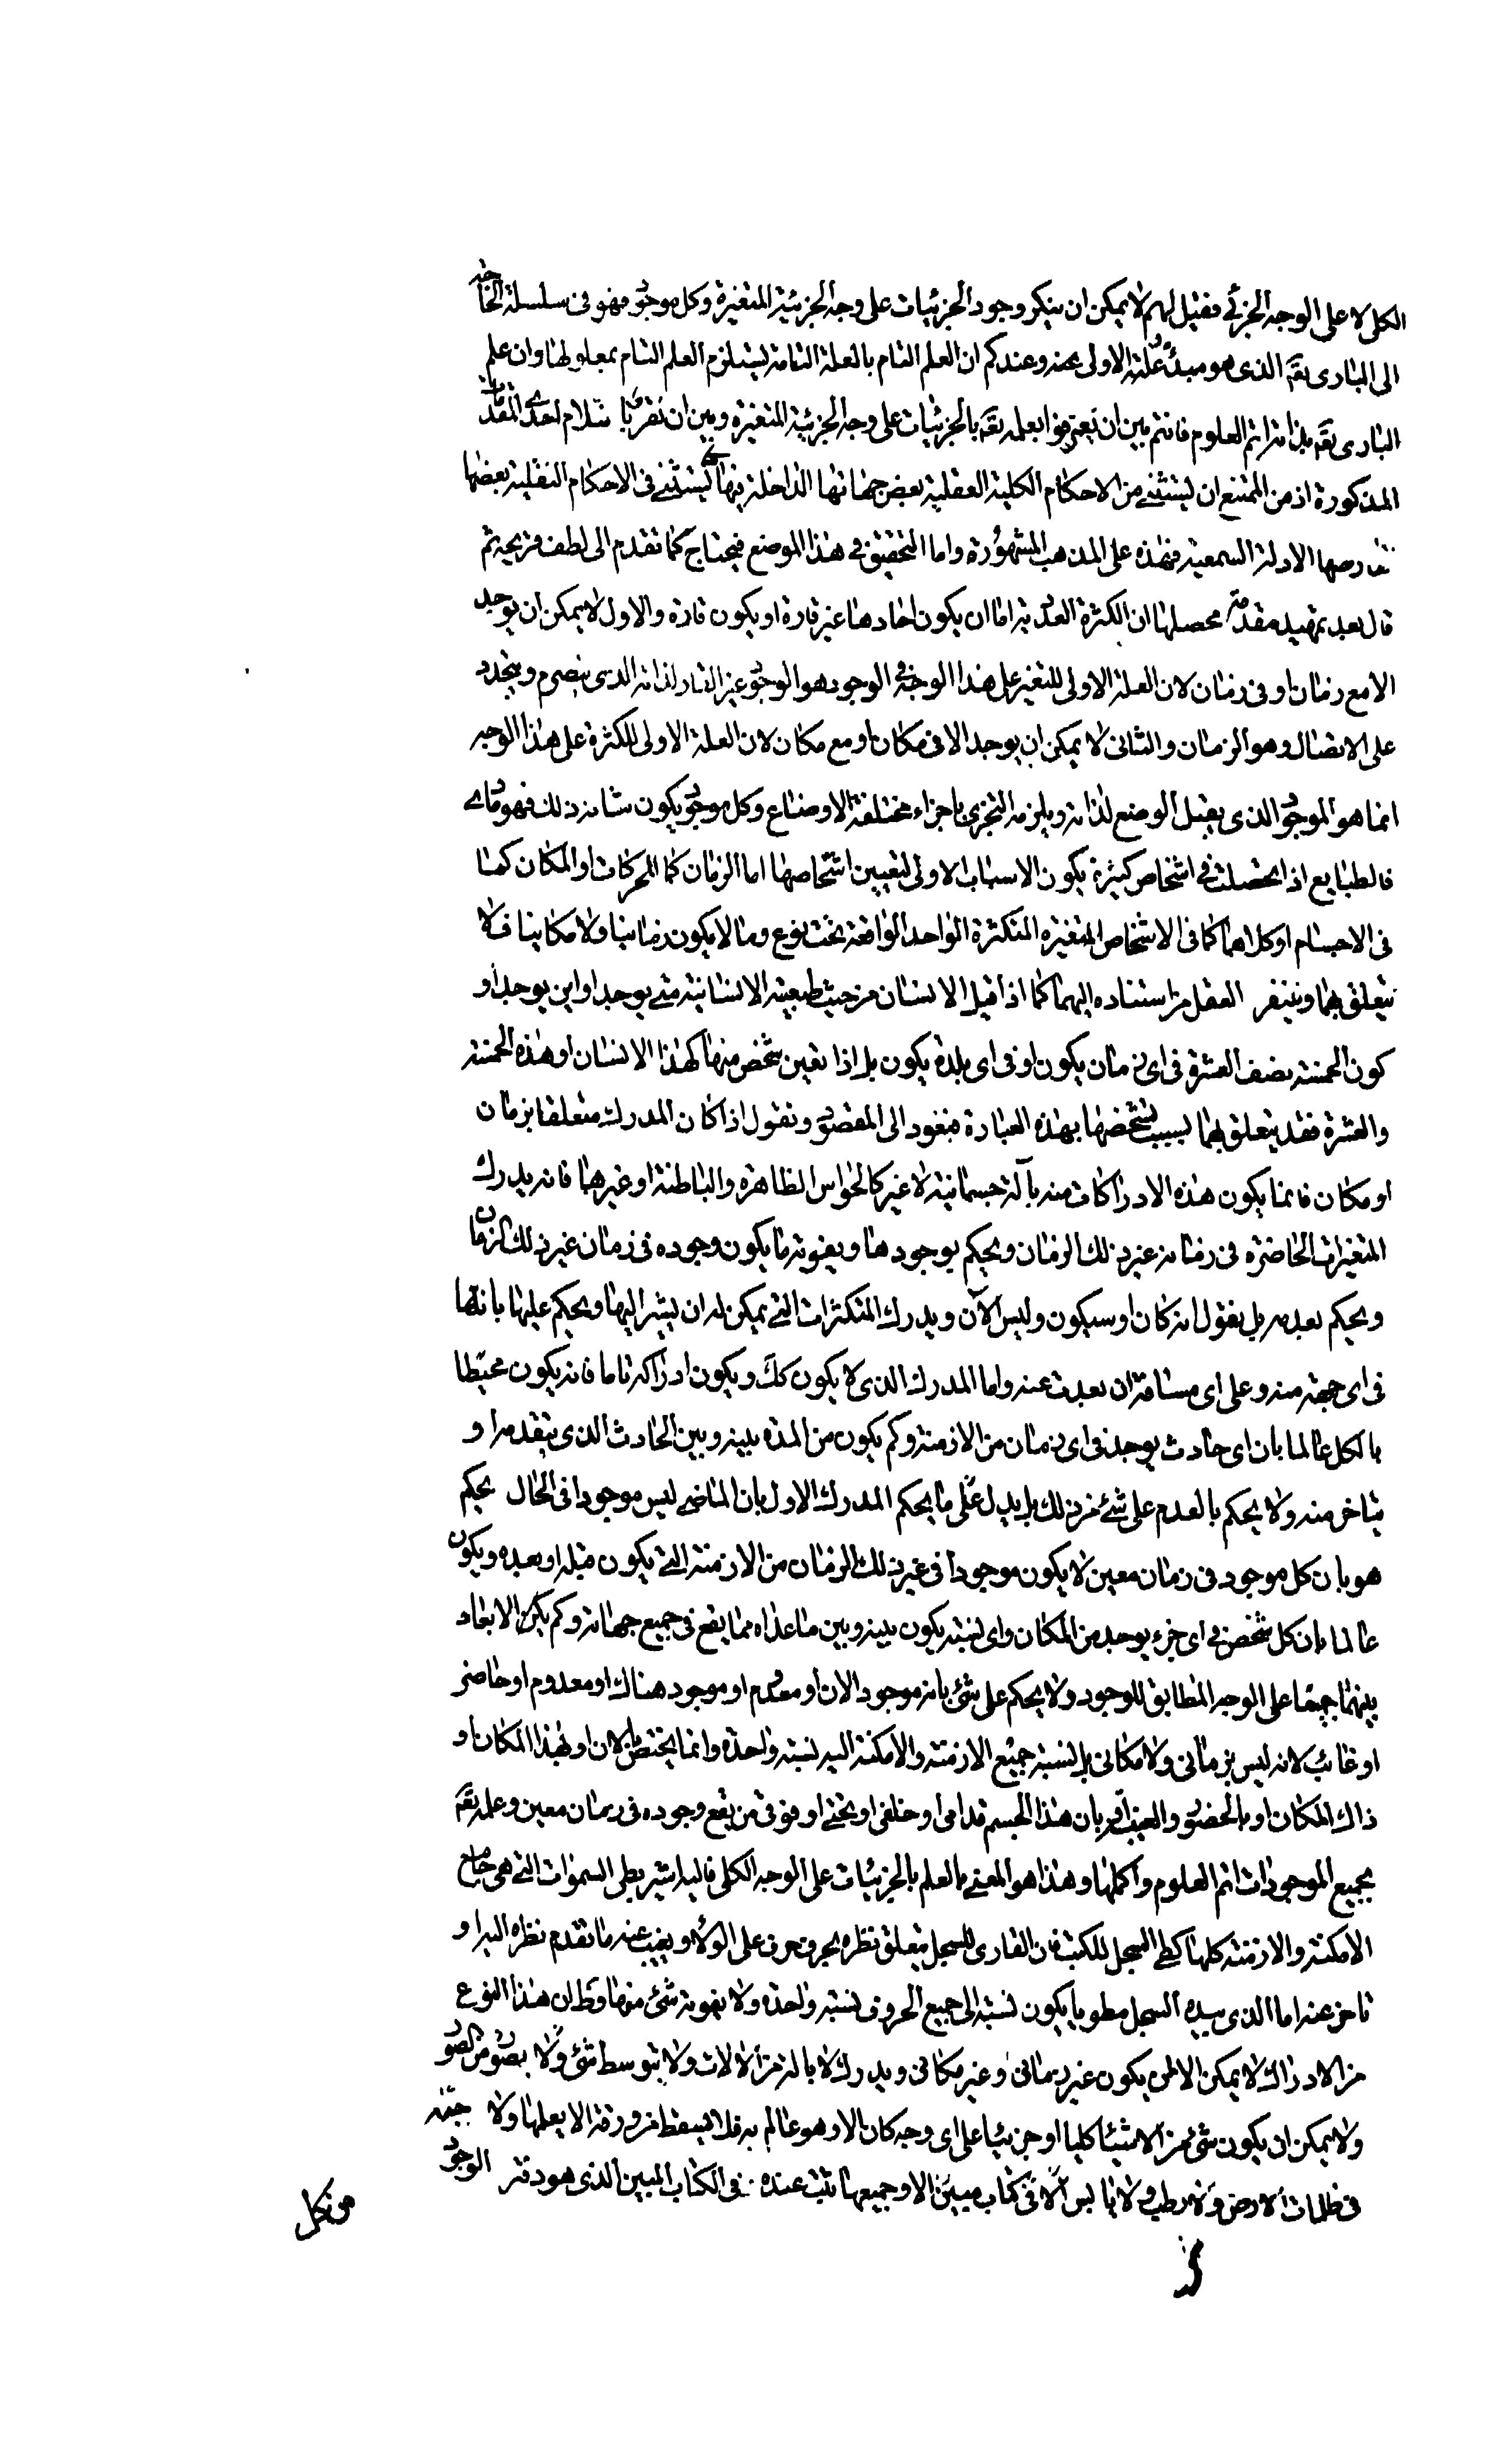 الكلى لا على الوجه الجزئى فقيل لهم لا يمكن ان ينكر وجود الجزئيات على وجه الجزئية المتغيرة وكل موجود فهو فى سلسلة الحاجة
الى البارى تعه الذى هو مبدأ وعلته الاولى عنه وعندكم ان العلم التام بالعلة التامة يستلزم العلم التام بمعلولها وان علم
البارى تعه بذاته اتم العلوم فانتم بين ان تعترفوا بعلمه تعه بالجزئيات على وجه الجزئية المتغيرة وبين ان تقروا بانثلام احدى المقدمات
المذكورة اذ من الممتنع ان يستثنى من الاحكام الكلية العقلية بعض جهاتها الداخلة فيها كما يستثنى فى الاحكام النقلية بعضها
تعارضها الادلة السمعية فهذه على المذهب المشهورة واما التحقيق فى هذا الموضع فيحتاج كما تقدم الى لطف قريحة ثم
قال بعد تمهيد مقدمة محصلها ان الكثرة العددية اما ان يكون احادها غير قارة او يكون قارة والاول لا يمكن ان يوجد
الا مع زمان او فى زمان لان العلة الاولى للتغير على هذا الوجه فى الوجود هو الوجود غير القار لذاته الذى يتصرم ويتجدد
على الاتصال وهو الزمان والثانى لا يمكن ان يوجد الا فى مكان او مع مكان لان العلة الاولى للكثرة على هذا الوجه
انما هو الموجود الذى يقبل الوضع لذاته ويلزمه التجزى باجزاء مختلفة الاوضاع وكل موجود يكون شانه ذلك فهو مادى
فالطبايع اذا تحصلت فى اشخاص كثيرة يكون الاسباب الاولى لتعيين اشخاصها اما الزمان كما للحركات او المكان كما
فى الاجسام او كلاهما كما فى الاشخاص المتغيرة المتكثرة الواحد الواقعة تحت نوع وما لا يكون زمانيا ولا مكانيا فلا
يتعلق بهما ويتنفر العقل من استناده اليهما كما اذا قيل الانسان من حيث طبيعته الانسانية متى يوجد او اين يوجد او
كون الخمسة نصف العشرة فى اى زمان يكون او فى اى بلدة يكون بل اذا تعين شخص منها كهذا الانسان او هذه الخمسة
والعشرة فقد يتعلق بهما بسبب تشخصها بهذه العبارة فنعود الى المقصود ونقول اذا كان المدرك متعلقا بزمان
او مكان فانما يكون هذه الادراكات منه بآلة جسمانية لا غير كالحواس الظاهرة والباطنة او غيرهما فانه يدرك
المتغيرات الحاضرة فى زمانه غير ذلك الزمان ويحكم بوجودها ويفوته ما يكون وجوده فى زمان غير ذلك الزمان
ويحكم بعدمه بل يقول انه كان او سيكون وليس الآن ويدرك المتكثرات التى يمكن له ان يشير اليها ويحكم عليها بانها
فى اى جهة منه وعلى اى مسافة ان بعدت عنه واما المدرك الذى لا يكون كك ويكون ادراكه تاما فانه يكون محيطا
بالكل عالما بان اى حادث يوجد فى اى زمان من الازمنة وكم يكون من المدة بينه وبين الحادث الذى يتقدمه او
يتاخر منه ولا يحكم بالعدم على شئ من ذلك بل بدل على ما يحكم المدرك الاول بان الماضى ليس موجودا فى الحال يحكم
هو بان كل موجود فى زمان معين لا يكون موجودا فى غير ذلك الزمان من الازمنة التى يكون قبله او بعده ويكون
عالما بان كل شخص فى اى جزء يوجد من المكان واى نسبته يكون بينه وبين ما عداه مما يقع فى جميع جهاته وكم يكن الابعاد
بينهما جميعا على الوجه المطابق للوجود ولا يحكم على شئ بانه موجود الان او معدوم او موجود هناك او معدوم او حاضر
او غائب لانه ليس بزمانى ولا مكانى بل نسبة جميع الازمنة والامكنة اليه نسبته واحدة وانما يختص بالان او بهذا المكان او
ذاك المكان او بالحضور والغيبة او بان هذا الجسم قدامى او خلفى او تحتى او فوقى من يقع وجوده فى زمان معين وعلمه تعه
بجميع الموجودات اتم العلوم واكملها وهذا هو المعنى بالعلم بالجزئيات على الوجه الكلى فاليه اشير بطى السموات التى هى جامع
الامكنة والازمنة كلها كطى السجل للكتب فان القارى للسجل يتعلق نظره بحرف حرف على الولاء ويغيب عنه ما تقدم نظره اليه او
تاخر عنه اما الذى بيده السجل مطويا يكون نسبته الى جميع الحروف نسبة واحدة ولا يفوته شئ منها وظ ان هذا النوع
من الادراك لا يمكن الا لمن يكون غير زمانى وغير مكانى ويدرك لا بآلة من الآلات ولا بتوسط شئ ولا بصورة من الصور
ولا يمكن ان يكون شئ من الاشيئا كليا او جزئيا على اى وجه كان الا وهو عالم به فلا يسقط من ورقة الا يعلمها ولا حبة
فى ظلمات الارض ولا رطب ولا يابس الا فى كتاب مبين الا وجميعها يثبت عنده فى الكتاب المبين الذى هو دفتر الوجود